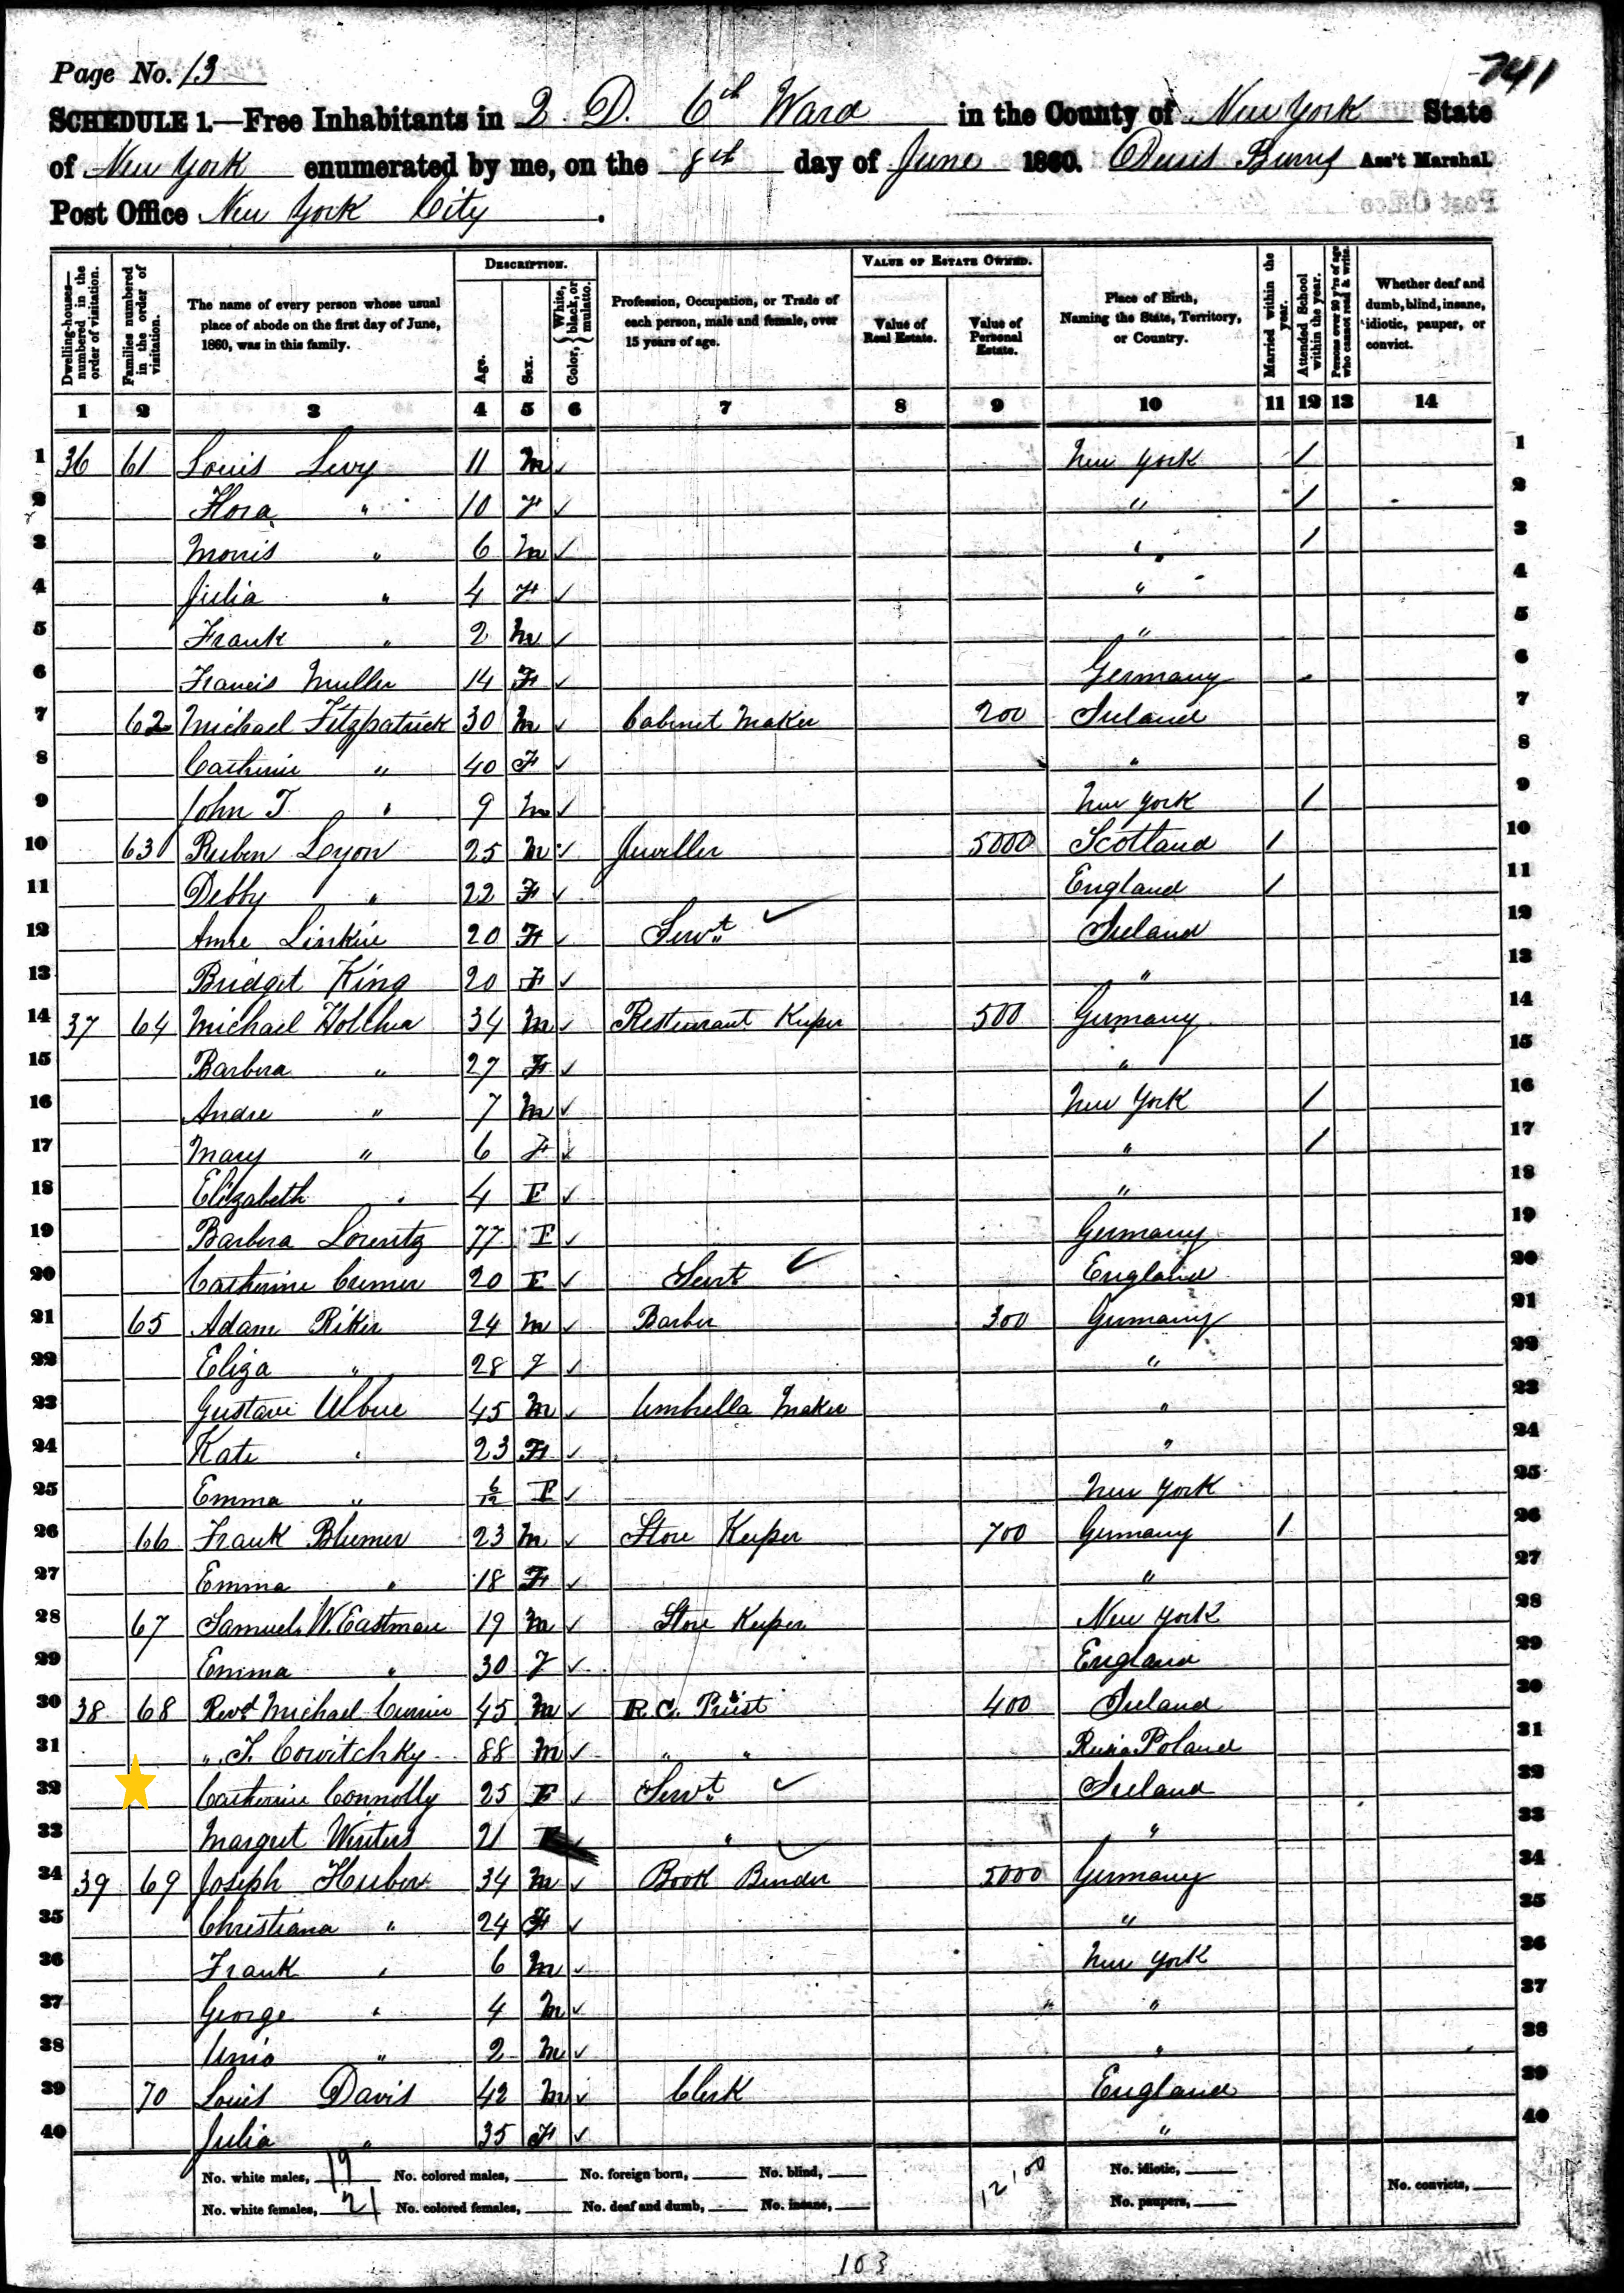 Page No. 13
741
SCHEDULE 1.—Free Inhabitants in 2 D. 6th Ward in the County of New York State
of New York enumerated by me, on the 8th day of June 1860. Ass't Marshal.
Post Office New York City.
Dwelling-houses—numbered in the order of visitation.
Families numbered in the order of visitation.
The name of every person whose usual place of abode on the first day of June, 1860, was in this family.
DESCRIPTION.
Age.
Sex.
Color, { White, black, or mulatto.
Profession, Occupation, or Trade of each person, male and female, over 15 years of age.
VALUE OF ESTATE OWNED.
Value of Real Estate.
Value of Personal Estate.
Place of Birth, Naming the State, Territory, or Country.
Married within the year.
Attended School within the year.
Persons over 20 y'rs of age who cannot read & write.
Whether deaf and dumb, blind, insane, idiotic, pauper, or convict.
1 2 3 4 5 6 7 8 9 10 11 12 13 14
1 36 61 Louis Levy 11 M ✓ New York / 1
2 Flora " 10 F ✓ " / 2
3 Morris " 6 M ✓ " / 3
4 Julia " 4 F ✓ " 4
5 Frank " 2 M ✓ " 5
6 Francis Muller 14 F ✓ Germany 6
7 62 Michael Fitzpatrick 30 M ✓ Cabinet Maker 200 Ireland 7
8 Catherine " 40 F ✓ " 8
9 John T. " 9 M ✓ New York / 9
10 63 Ruben Lyon 25 M ✓ Jeweller 5000 Scotland / 10
11 Debby " 22 F ✓ England / 11
12 Anne 20 F ✓ Servt ✓ Ireland 12
13 Bridget King 20 F ✓ " 13
14 37 64 Michael 34 M ✓ Resturant Keeper 500 Germany 14
15 Barbera " 27 F ✓ " 15
16 Andre " 7 M ✓ New York / 16
17 Mary " 6 F ✓ " / 17
18 Elizabeth " 4 F ✓ " 18
19 Barbera Lorentz 77 F ✓ Germany 19
20 Catherine Cremer 20 F ✓ Servt ✓ England 20
21 65 Adam Riker 24 M ✓ Barber 300 Germany 21
22 Eliza " 28 F ✓ " 22
23 Gustave 45 M ✓ Umbrella Maker " 23
24 Kate " 23 F ✓ " 24
25 Emma " 6/12 F ✓ New York 25
26 66 Frank Blumer 23 M ✓ Store Keeper 700 Germany / 26
27 Emma " 18 F ✓ " 27
28 67 Samuel W. Eastman 19 M ✓ Store Keeper New York 28
29 Emma " 30 F ✓ England 29
30 38 68 Revd Michael 45 M ✓ R.C. Priest 400 Ireland 30
31 " Cowitchky 88 M ✓ " " Poland 31
32 Catherine Connolly 25 F ✓ Servt ✓ Ireland 32
33 Margret Winters 21 F ✓ " ✓ " 33
34 39 69 Joseph Huber 34 M ✓ Book Binder 5000 Germany 34
35 Christiana " 24 F ✓ " 35
36 Frank " 6 M ✓ New York 36
37 George " 4 M ✓ " 37
38 " 2 M ✓ " 38
39 70 Louis Davis 42 M ✓ Clerk England 39
40 Julia " 35 F ✓ " 40
No. white males, 19 No. colored males, No. foreign born, No. blind, No. idiotic,
No. white females, 21 No. colored females, No. deaf and dumb, No. insane, 12100 No. paupers, No. convicts,
103